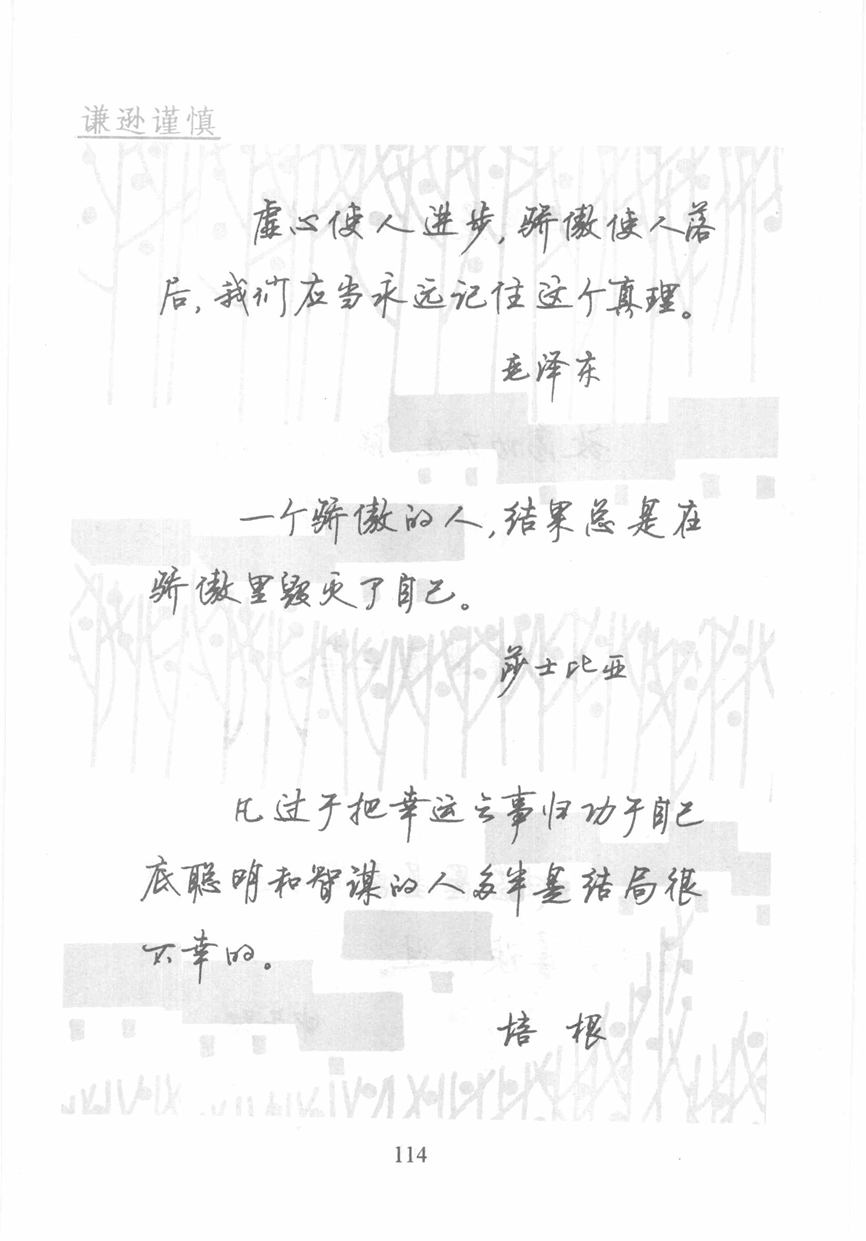 谦逊谨慎
虚心使人进步,骄傲使人落
后,我们应当永远记住这个真理。
毛泽东
一个骄傲的人,结果总是在
骄傲里毁灭了自己。
莎士比亚
凡过于把幸运之事归功于自己
底聪明和智谋的人多半是结局很
不幸的。
培 根
114